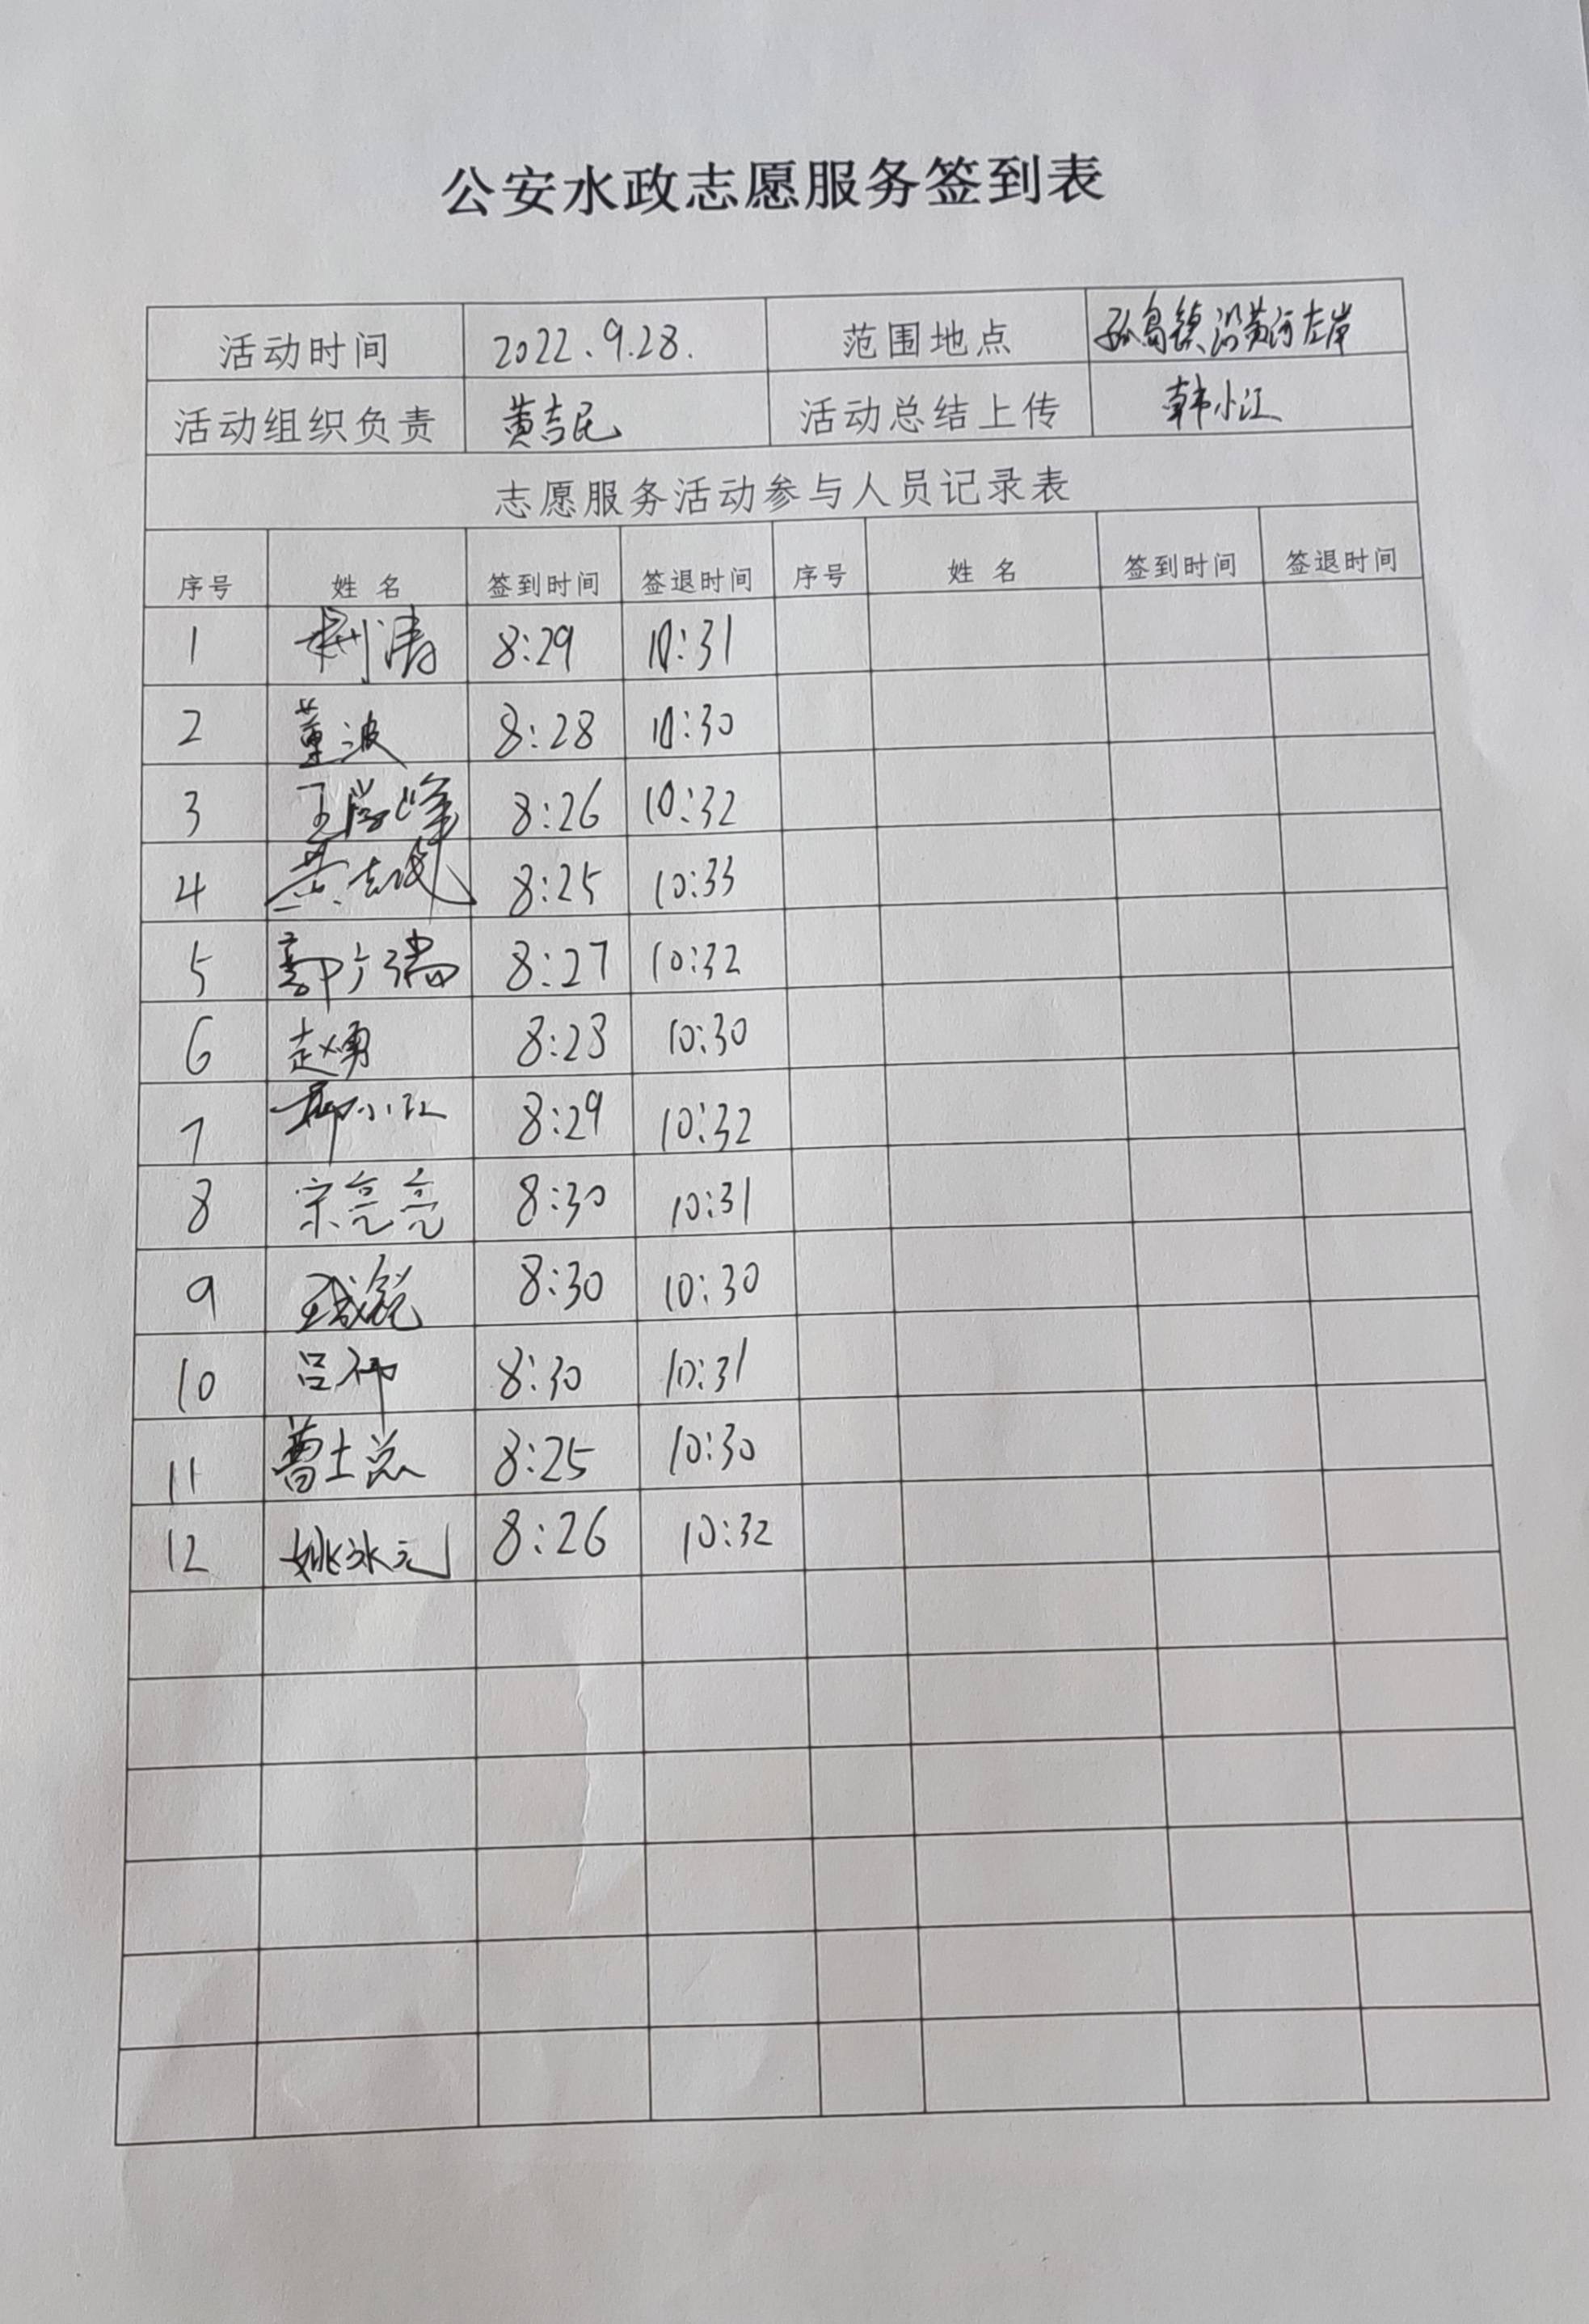 公安水政志愿服务签到表
活动时间 2022.9.28. 范围地点 孤岛镇沿黄河左岸
活动组织负责 黄吉民 活动总结上传 韩小江
志愿服务活动参与人员记录表
序号 姓名 签到时间 签退时间 序号 姓名 签到时间 签退时间
1 8:29 10:31
2 董波 8:28 10:30
3 8:26 10:32
4 8:25 10:33
5 8:27 10:32
6 赵勇 8:28 10:30
7 8:29 10:32
8 宋亮亮 8:30 10:31
9 8:30 10:30
10 吕 8:30 10:31
11 曹士总 8:25 10:30
12 姚冰元 8:26 10:32